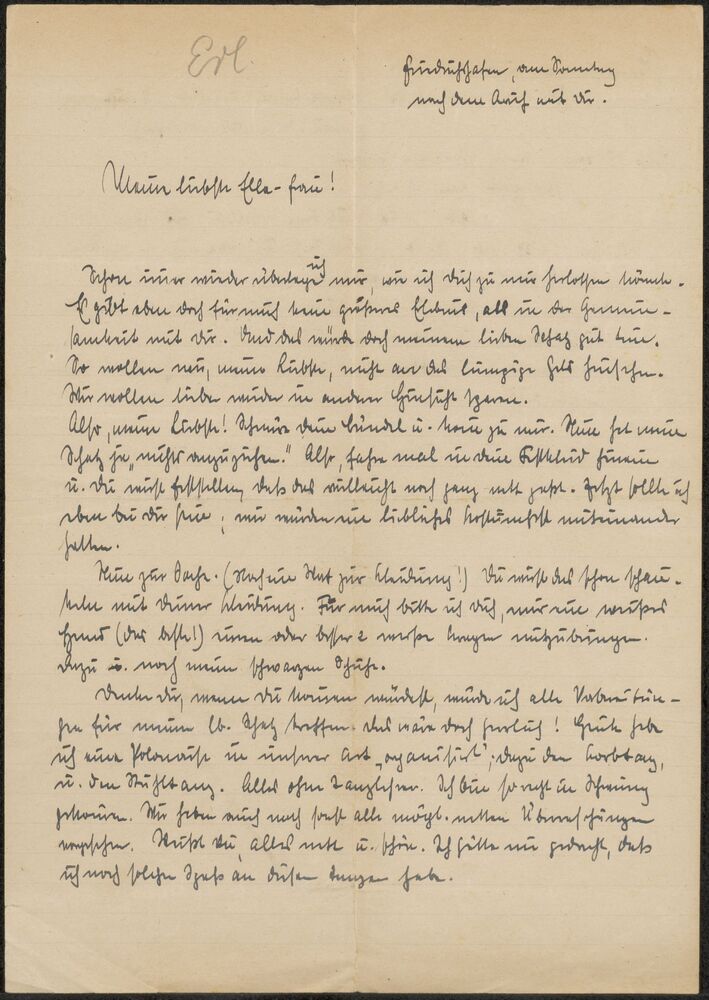 Erl.
Friedrichshafen, am Sonntag
nach dem Anruf mit Dir.
Meine liebste Elle-Frau!
Schon immer wieder überlege ich mir, wie ich Dich zu mir herlotsen könnte.
Es gibt eben doch für mich kein größeres Erlebnis, als in der Gemein-
samkeit mit Dir. Und das würde doch meinem lieben Schatz gut tun.
So wollen wir, meine Liebste, nicht an das lumpige Geld hinsehen.
Wir wollen lieber wieder in anderer Hinsicht sparen.
Also, meine Liebste! Schnüre dein Bündel u. komm zu mir. Nun hat mein
Schatz ja "nichts anzuziehen." Also, fahre mal in dein Festkleid hinein
u. Du wirst feststellen, daß das vielleicht noch ganz nett geht. Jetzt sollte ich
eben bei Dir sein; wir würden ein liebliches Kostümfest miteinander
halten.
Nun zur Sache. (Noch ein Wort zur Kleidung!) Du wirst das schon schau-
keln mit Deiner Kleidung. Für mich bitte ich Dich, mir ein weißes
Hemd (das beste!) einen oder besser 2 weiße Kragen mitzubringen.
Dazu u. noch meine schwarzen Schuhe.
Denke dir, wenn Du kommen würdest, würde ich alle Vorbereitun-
gen für meinen lb. Schatz treffen. Das wäre doch herrlich! Heute habe
ich eine Polonaise in unserer Art "organisiert"; dazu den Korbtanz,
u. den Stuhltanz. Alles ohne Tanzlehrer. Ich bin so recht in Schwung
gekommen. Wir haben auch noch sonst alle mögl. netten Überraschungen
vorgesehen. Weißt Du, alles nett u. schön. Ich hätte nie gedacht, daß
ich noch solchen Spaß an diesen Dingen habe.